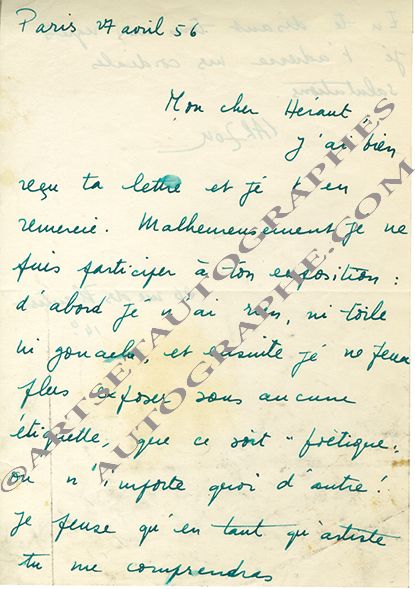 Paris 27 avril 56
Mon cher Hérant
J'ai bien
reçu ta lettre et je t'en
remercie. Malheureusement je ne
puis participer à ton exposition :
d'abord je n'ai rien, ni toile
ni gouache, et ensuite je ne peux
plus exposer sous aucune
étiquette, que ce soit "poétique"
ou n'importe quoi d'autre !
Je pense qu'en tant qu'artiste
tu me comprendras
©ARTSETAUTOGRAPHES
AUTOGRAPHE.COM